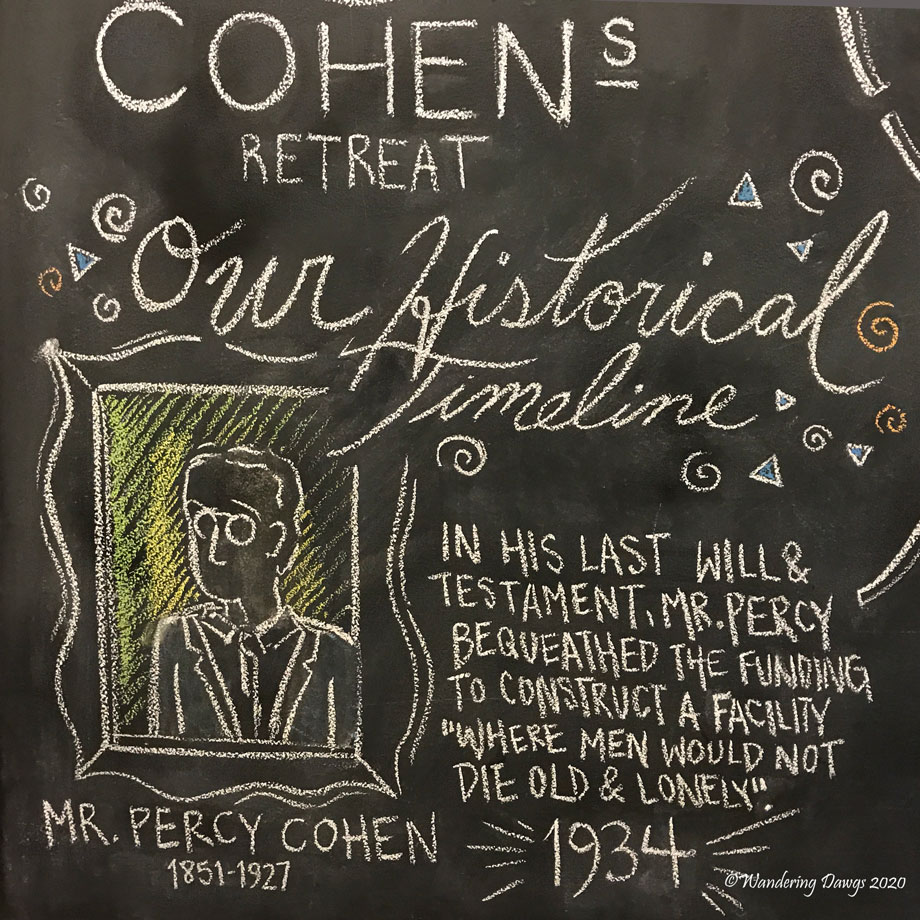 COHENS
RETREAT
Our Historical
Timeline
IN HIS LAST WILL &
TESTAMENT, MR. PERCY
BEQUEATHED THE FUNDING
TO CONSTRUCT A FACILITY
"WHERE MEN WOULD NOT
DIE OLD & LONELY".
1934
MR. PERCY COHEN
1851-1927
©Wandering Dawgs 2020